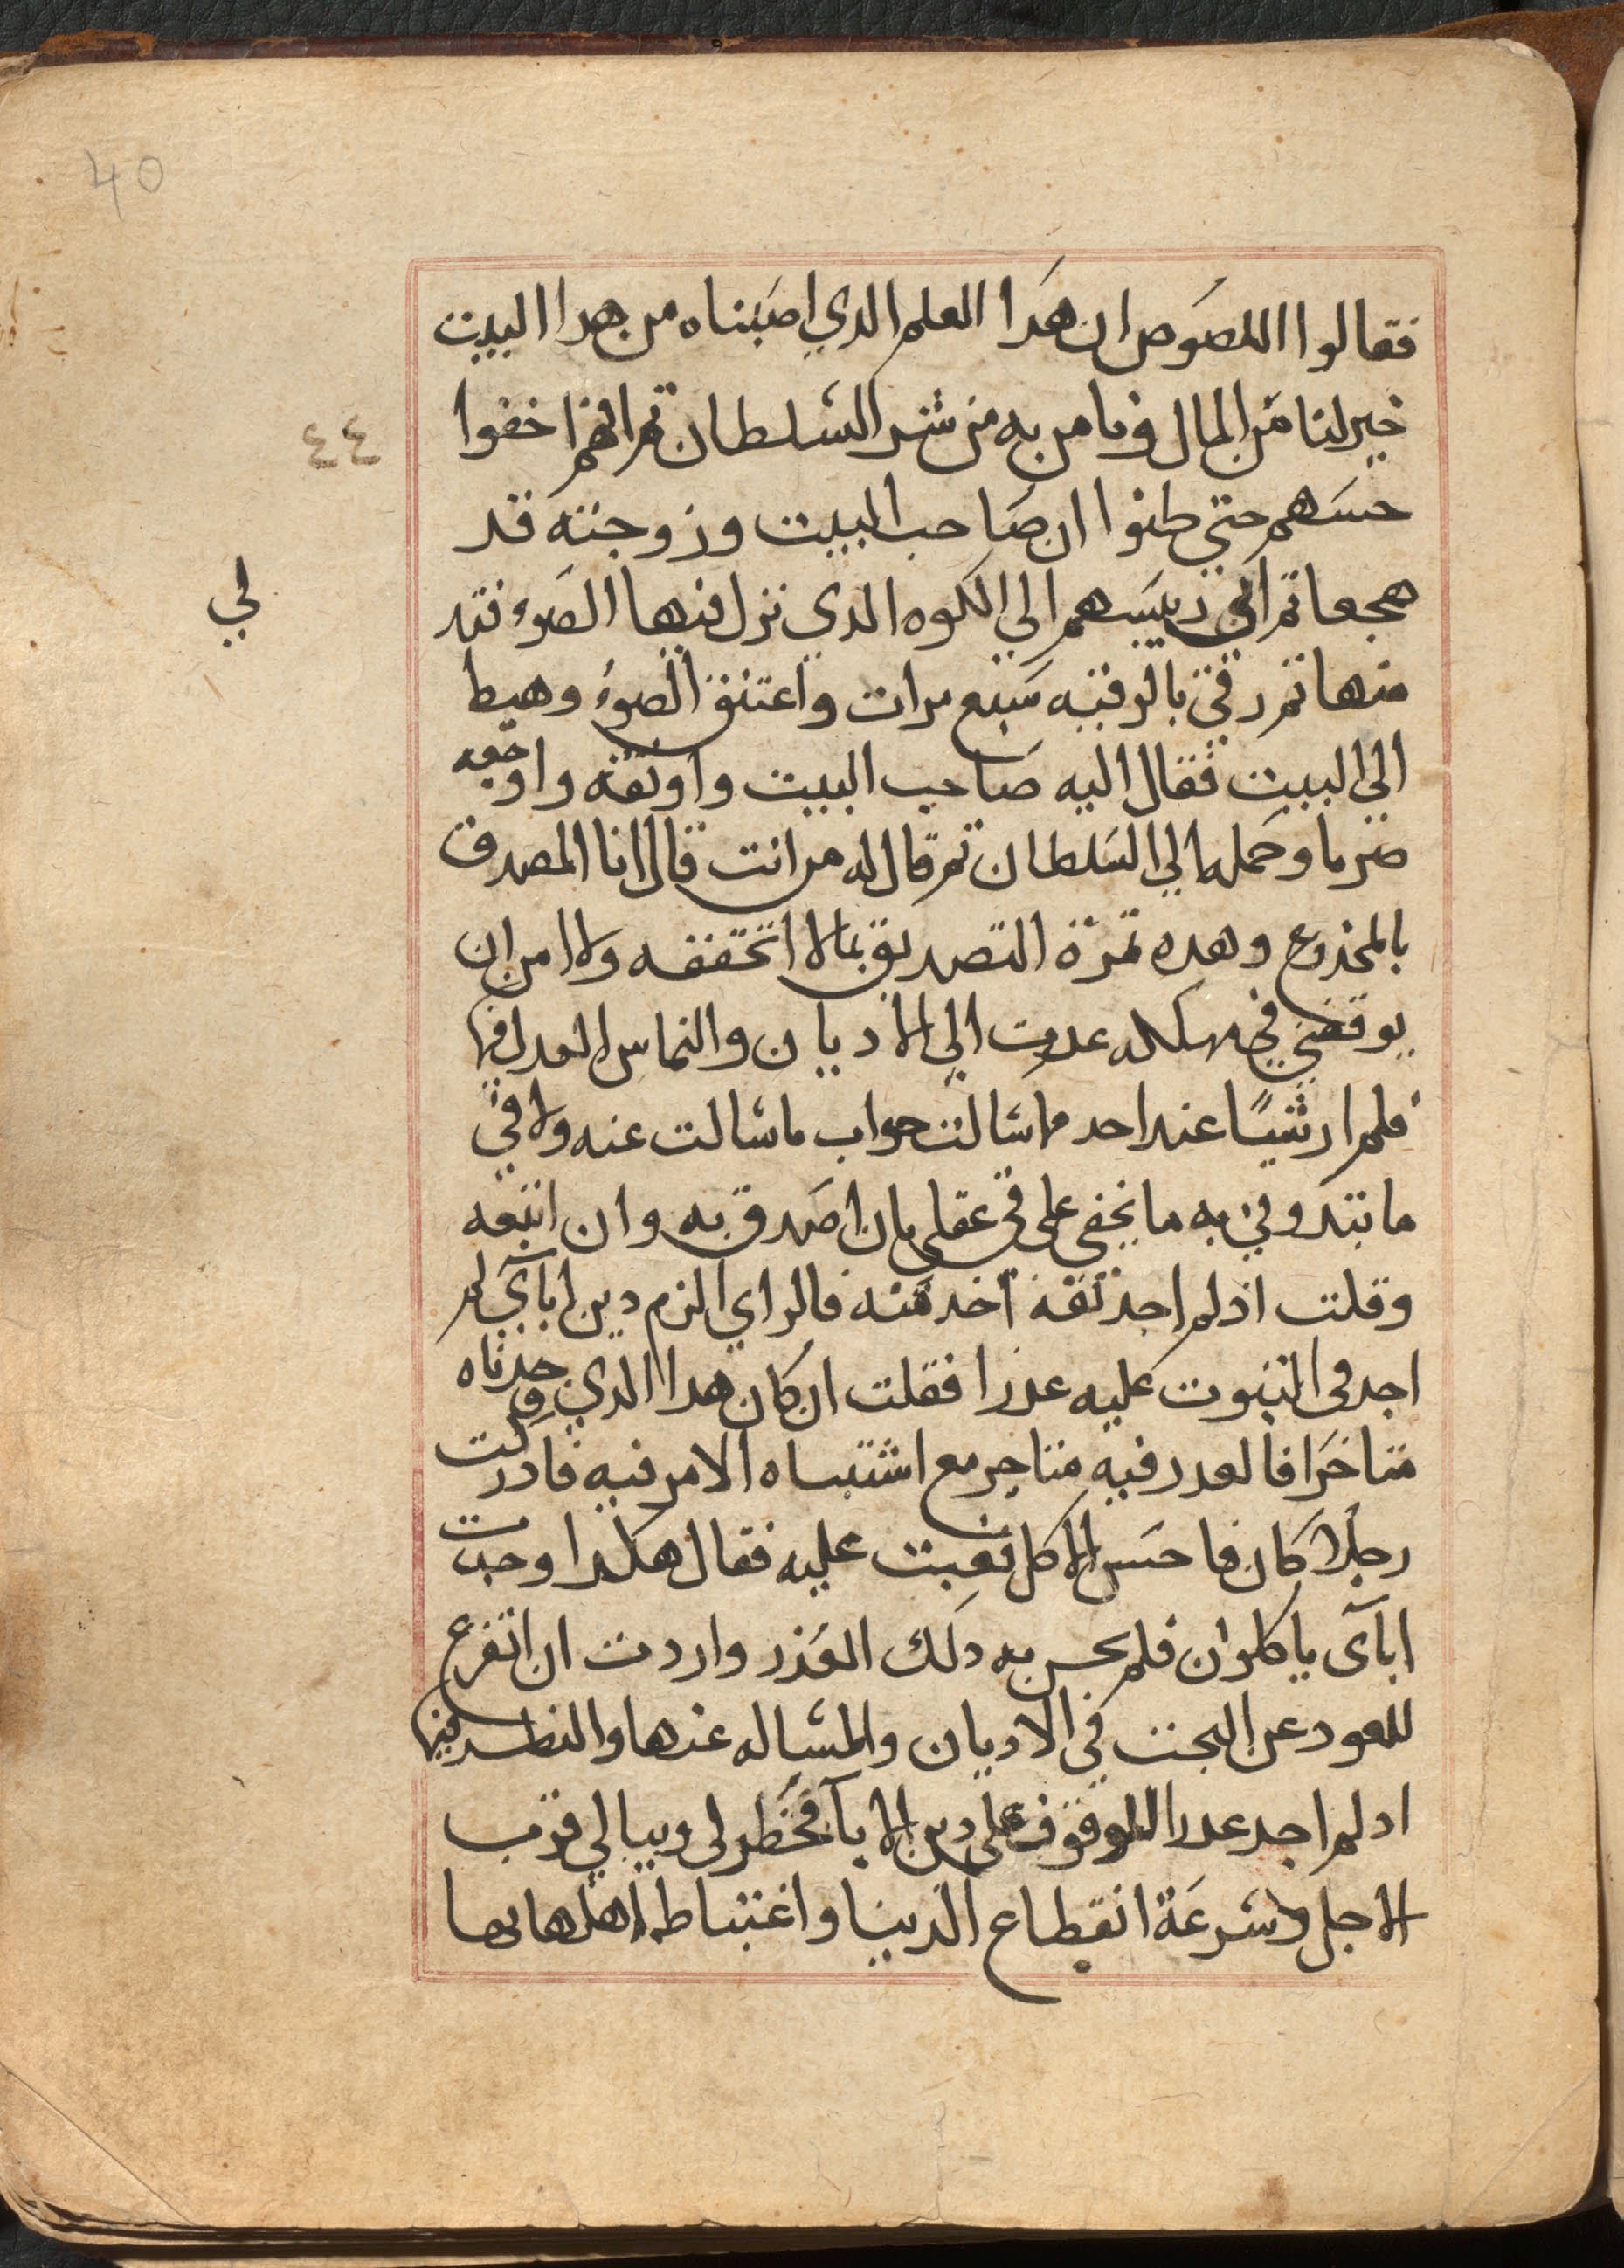 40
فقالوا اللصوص ان هدا العلم الدي اصبناه من هدا البيت
خير لنا من المال وما من به من شر السلطان تم انهم اخفوا
٤٤
حسهم حتي طنوا ان صاحب البيت وزوجته قد
هجعا تم اتي رييسهم الي الكوه الدي نزل فيها الضوء
لي
منها تم رقي بالرقيه سبع مرات واعتنق الضوء وهبط
الي البيت فقال اليه صاحب البيت واوثقه واوجعه
ضربا وحمله الي السلطان تم قال له من انت قال انا المصدق
بالمخدوع وهده تمرة التصديق بما لا اتحققه ولا امن ان
يوقضي في مهلكه عدت الي الاديان والتماس العدل فيها
فلم ار شيًا عند احد ما سالت جواب ما سالت عنه ولا في
ما بتدوني به ما يخفي علي في عقلي بان اصدق به وان اتبعه
وقلت اذ لم اجد ثقه اخد منه فالراي الزم دين ابآيي لم
اجد في التبوت عليه عدرا فقلت ان كان هدا الدي وجدناه
متاخرا فالعدر فيه متاخر مع اشتباه الامر فيه فادركت
رجلا كان فاحس الاكل فعبت عليه فقال هكدا وجدت
ابآى ياكلون فلم يحسن به دلك العذر واردت ان اتفرع
للعود عن البحت في الاديان والمساله عنها والنطر فيها
اد لم اجد عدرا للوقوف علي دين الابآ فخطر لي وببالي قرب
الاجل وسرعة انقطاع الدنيا واغتباط اهلها بها